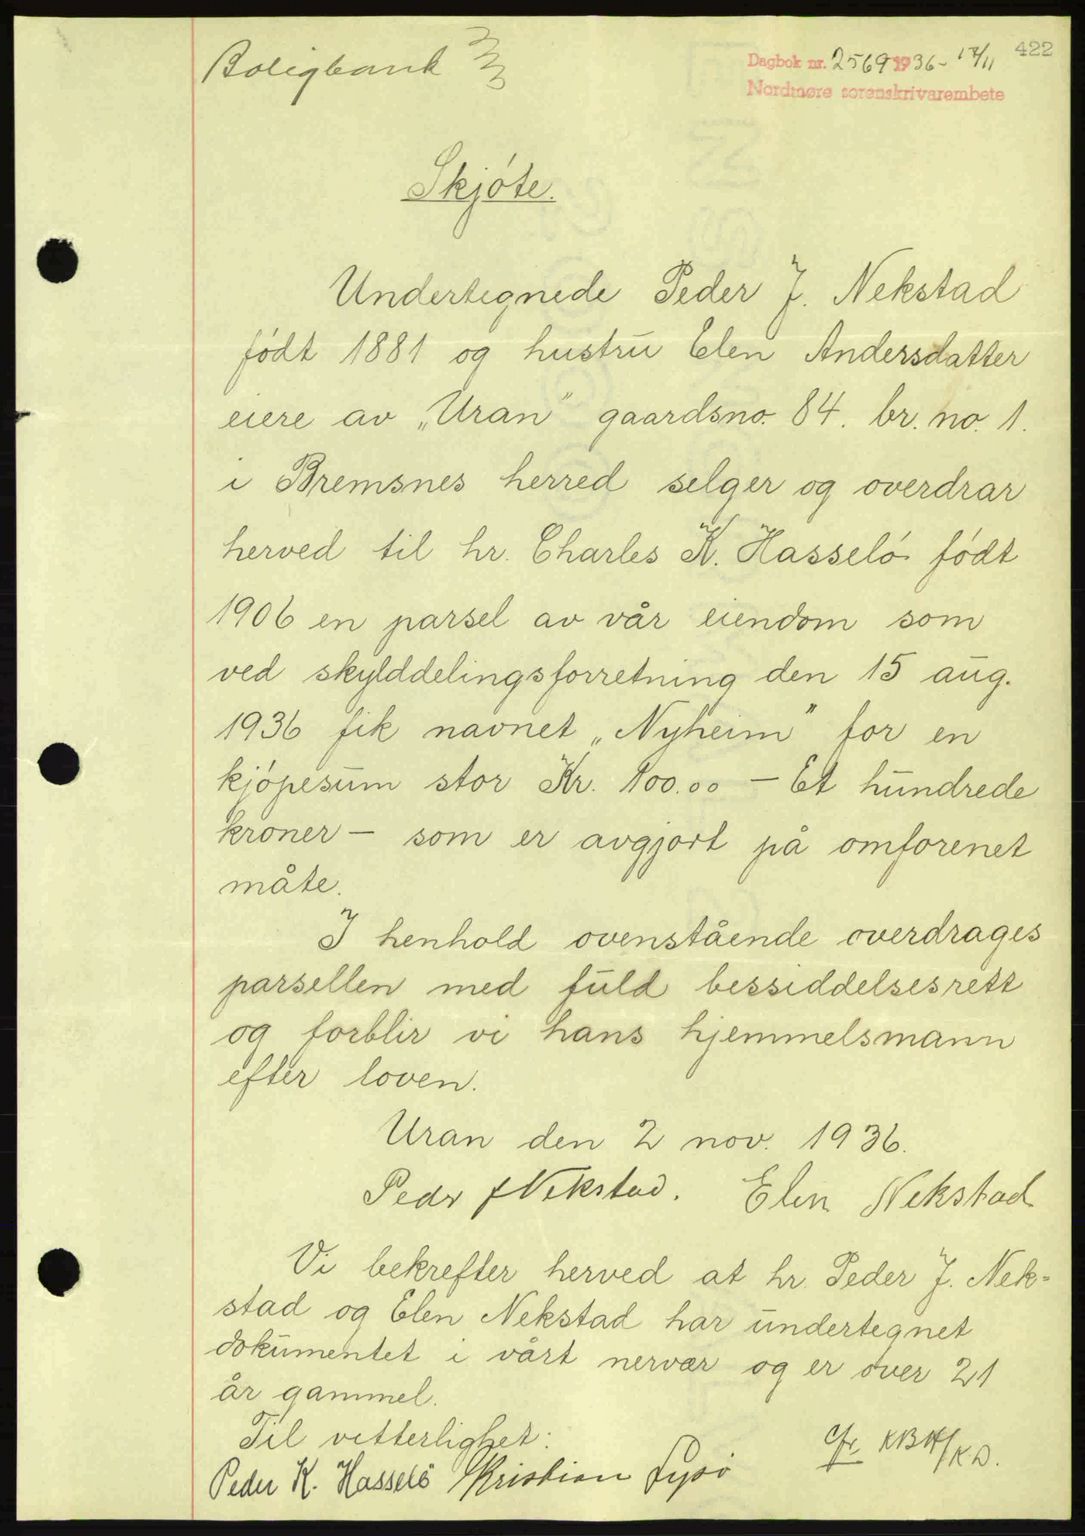 Boligbank
422
Dagbok nr. 2569 1936 - 17/11
Nordmøre sorenskrivarembete
Skjóte.
Undertegnede Peder J. Nekstad
fódt 1881 og hustru Elen Andersdatter
eiere av „Uran" gaardsno. 84. br. no. 1.
i Bremsnes herred selger og overdrar
herved til hr. Charles K. Hasseló fódt
1906 en parsel av vår eiendom som
ved skylddelingsforretning den 15 aug.
1936 fik navnet „Nyheim" for en
kjópesum stor Kr. 100.00 — Et hundrede
kroner — som er avgjort på omforenet
måte.
I henhold ovenstående overdrages
parsellen med fuld bessiddelsesrett
og forblir vi hans hjemmelsmann
efter loven.
Uran den 2 nov. 1936.
Peder J Nekstad. Elen Nekstad
Vi bekrefter herved at hr. Peder J. Nek-
stad og Elen Nekstad har undertegnet
dokumentet i vårt nervær og er over 21
år gammel.
Til vitterlighet:
Peder K. Hasselö Kristian Lysö